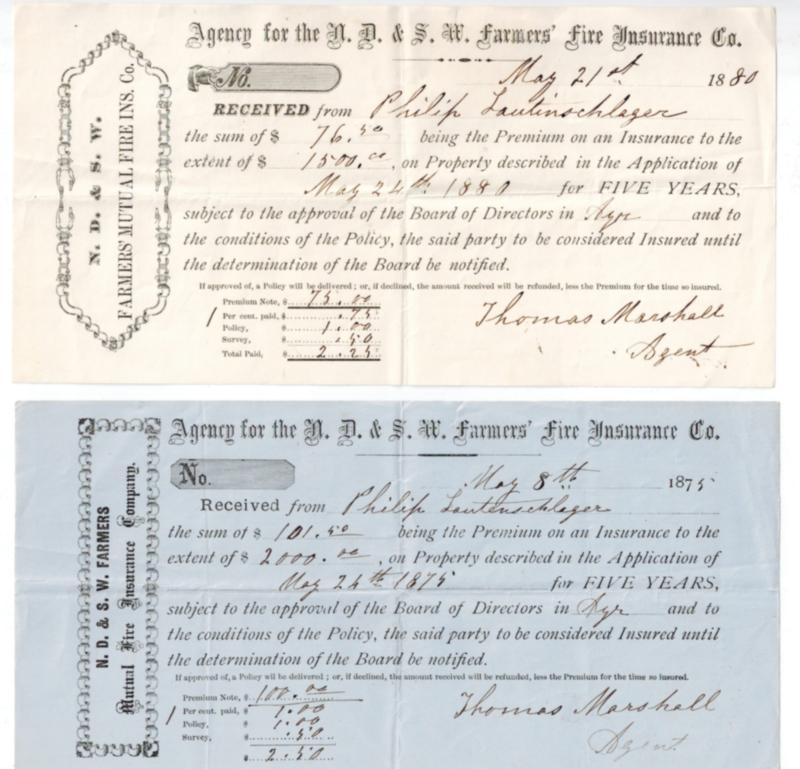 Agency for the N. D. & S. W. Farmers' Fire Insurance Co.
N. D. & S. W.
FARMERS' MUTUAL FIRE INS. Co.
No.
May 21st 1880
RECEIVED from Philip Lautinschlager
the sum of $ 76.50 being the Premium on an Insurance to the
extent of $ 1500.00, on Property described in the Application of
May 24th 1880 for FIVE YEARS,
subject to the approval of the Board of Directors in Ayr and to
the conditions of the Policy, the said party to be considered Insured until
the determination of the Board be notified.
If approved of, a Policy will be delivered; or, if declined, the amount received will be refunded, less the Premium for the time so insured.
Premium Note, $ 75.00
1 Per cent. paid, $ .75
Policy, 1.00
Survey, .50
Total Paid, $ 2.25
Thomas Marshall
Agent
Agency for the N. D. & S. W. Farmers' Fire Insurance Co.
N. D. & S. W. FARMERS
Mutual Fire Insurance Company.
No.
May 8th 1875
Received from Philip Lautenschlager
the sum of $ 101.50 being the Premium on an Insurance to the
extent of $ 2000.00, on Property described in the Application of
May 24th 1875 for FIVE YEARS,
subject to the approval of the Board of Directors in Ayr and to
the conditions of the Policy, the said party to be considered Insured until
the determination of the Board be notified.
If approved of, a Policy will be delivered; or, if declined, the amount received will be refunded, less the Premium for the time so insured.
Premium Note, $ 100.00
1 Per cent. paid, $ 1.00
Policy, $ 1.00
Survey, $ .50
$ 2.50
Thomas Marshall
Agent